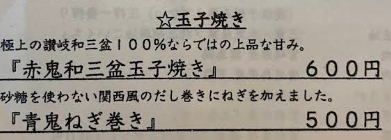 ☆玉子焼き
極上の讃岐和三盆１００％ならではの上品な甘み。
『赤鬼和三盆玉子焼き』 ６００円
砂糖を使わない関西風のだし巻きにねぎを加えました。
『青鬼ねぎ巻き』 ５００円